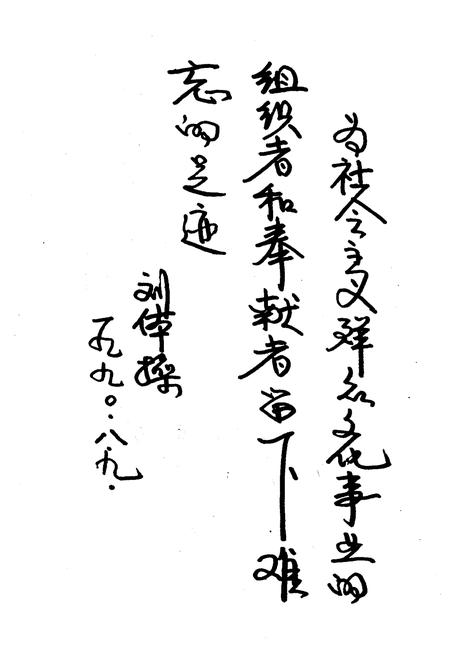 为社会主义群众文化事业的
组织者和奉献者留下难
忘的足迹
刘体操
一九九〇.八.九.